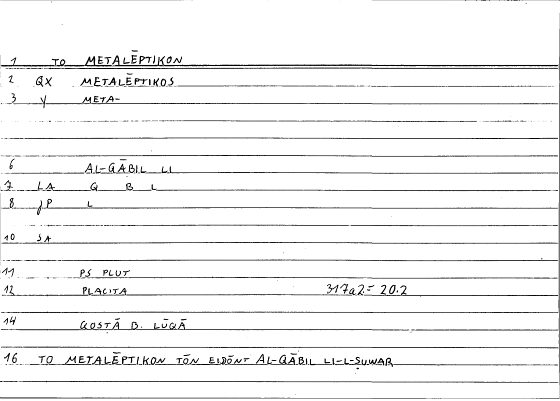 1 TO METALĒPTIKON
2 QX METALĒPTIKOS
3 y META-
6 AL-QĀBIL LI
7 LA Q B L
8 JP L
10 SA
11 PS PLUT
12 PLACITA 317a2= 20.2
14 QOSṬĀ B. LŪQĀ
16 TO METALĒPTIKON TŌN EIDŌNT AL-QĀBIL LI-L-ṢUWAR